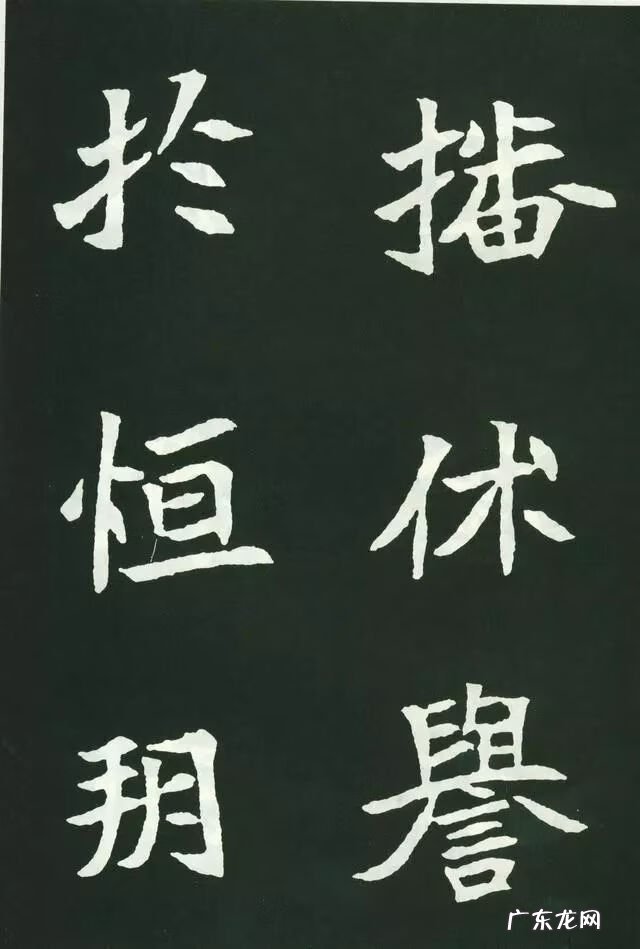 播休譽
於恒朔
广东龙网